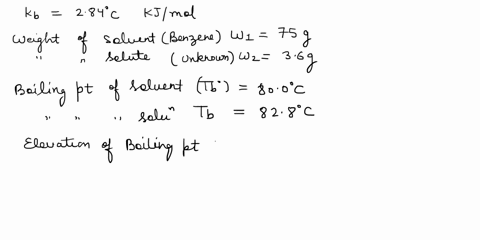 kb = 2.84°c KJ/mol
Weight of solvent (Benzene) W1 = 75 g
" " solute (Unknown) W2 = 3.6g
Boiling pt of solvent (Tb°) = 80.0°C
" " " soluⁿ Tb = 82.8°C
Elevation of Boiling pt